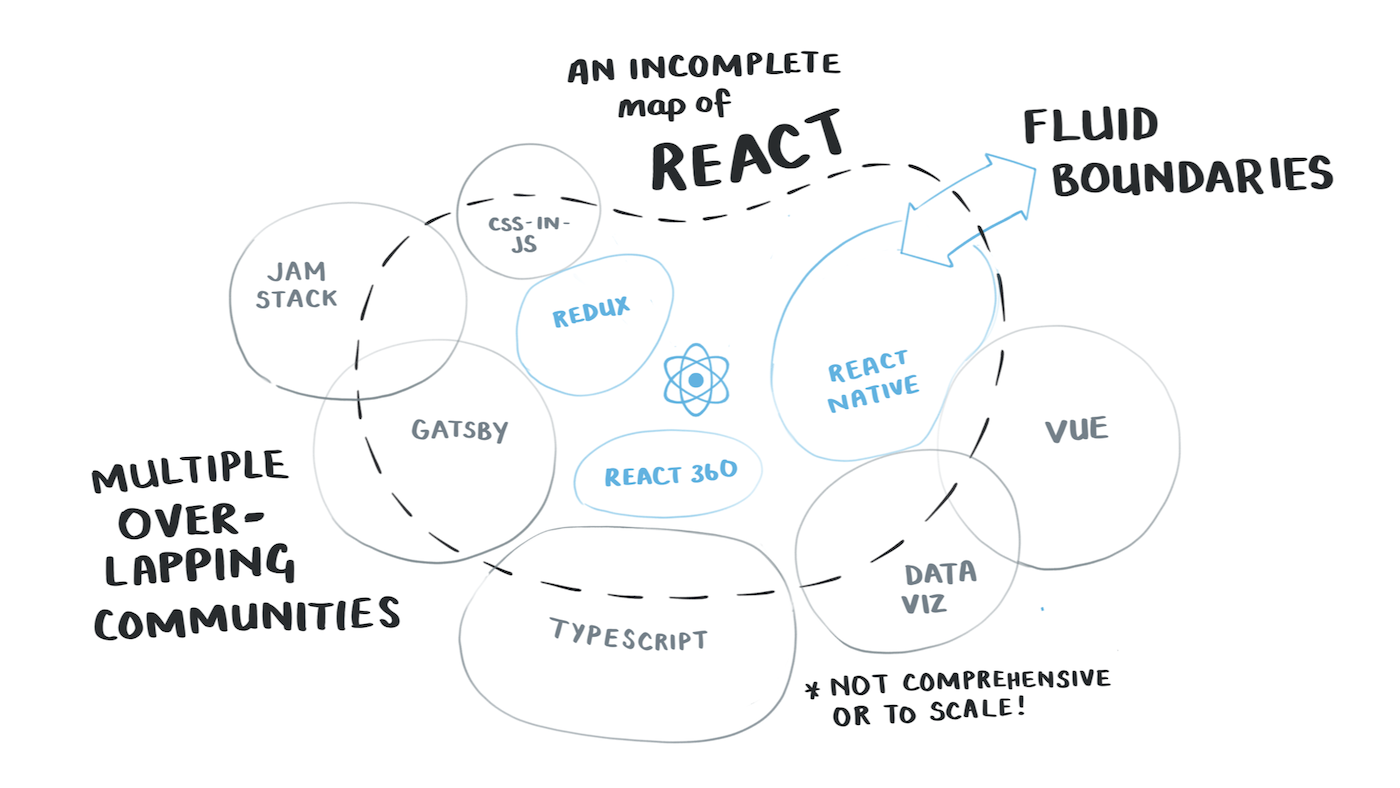 AN INCOMPLETE
map of
REACT
FLUID
BOUNDARIES
CSS-IN-
JS
JAM
STACK
REDUX
REACT
NATIVE
GATSBY
VUE
REACT 360
MULTIPLE
OVER-
LAPPING
COMMUNITIES
DATA
VIZ
TYPESCRIPT
* NOT COMPREHENSIVE
OR TO SCALE!